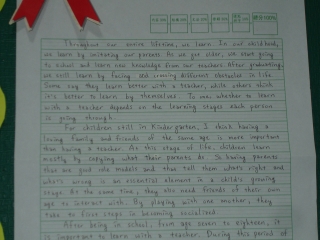 Throughout our entire lifetime, we learn. In our childhood,
we learn by imitating our parents. As we get older, we start going
to school and learn new knowledge from our teachers. After graduating,
we still learn by facing and crossing different obstacles in life.
Some say they learn better with a teacher, while others think
it's better to learn by themselves. To me, whether to learn
with a teacher depends on the learning stages each person
is going through.
For children still in kindergarten, I think having a
loving family and friends of the same age is more important
than having a teacher. At this stage of life, children learn
mostly by copying what their parents do. So having parents
that are good role models and that tell them what's right and
what's wrong is an essential element in a child's growing
stage. At the same time, they also need friends of their own
age to interact with. By playing with one another, they
take to first steps in becoming socialized.
After being in school, from age seven to eighteen, it
is important to learn with a teacher. During this period of